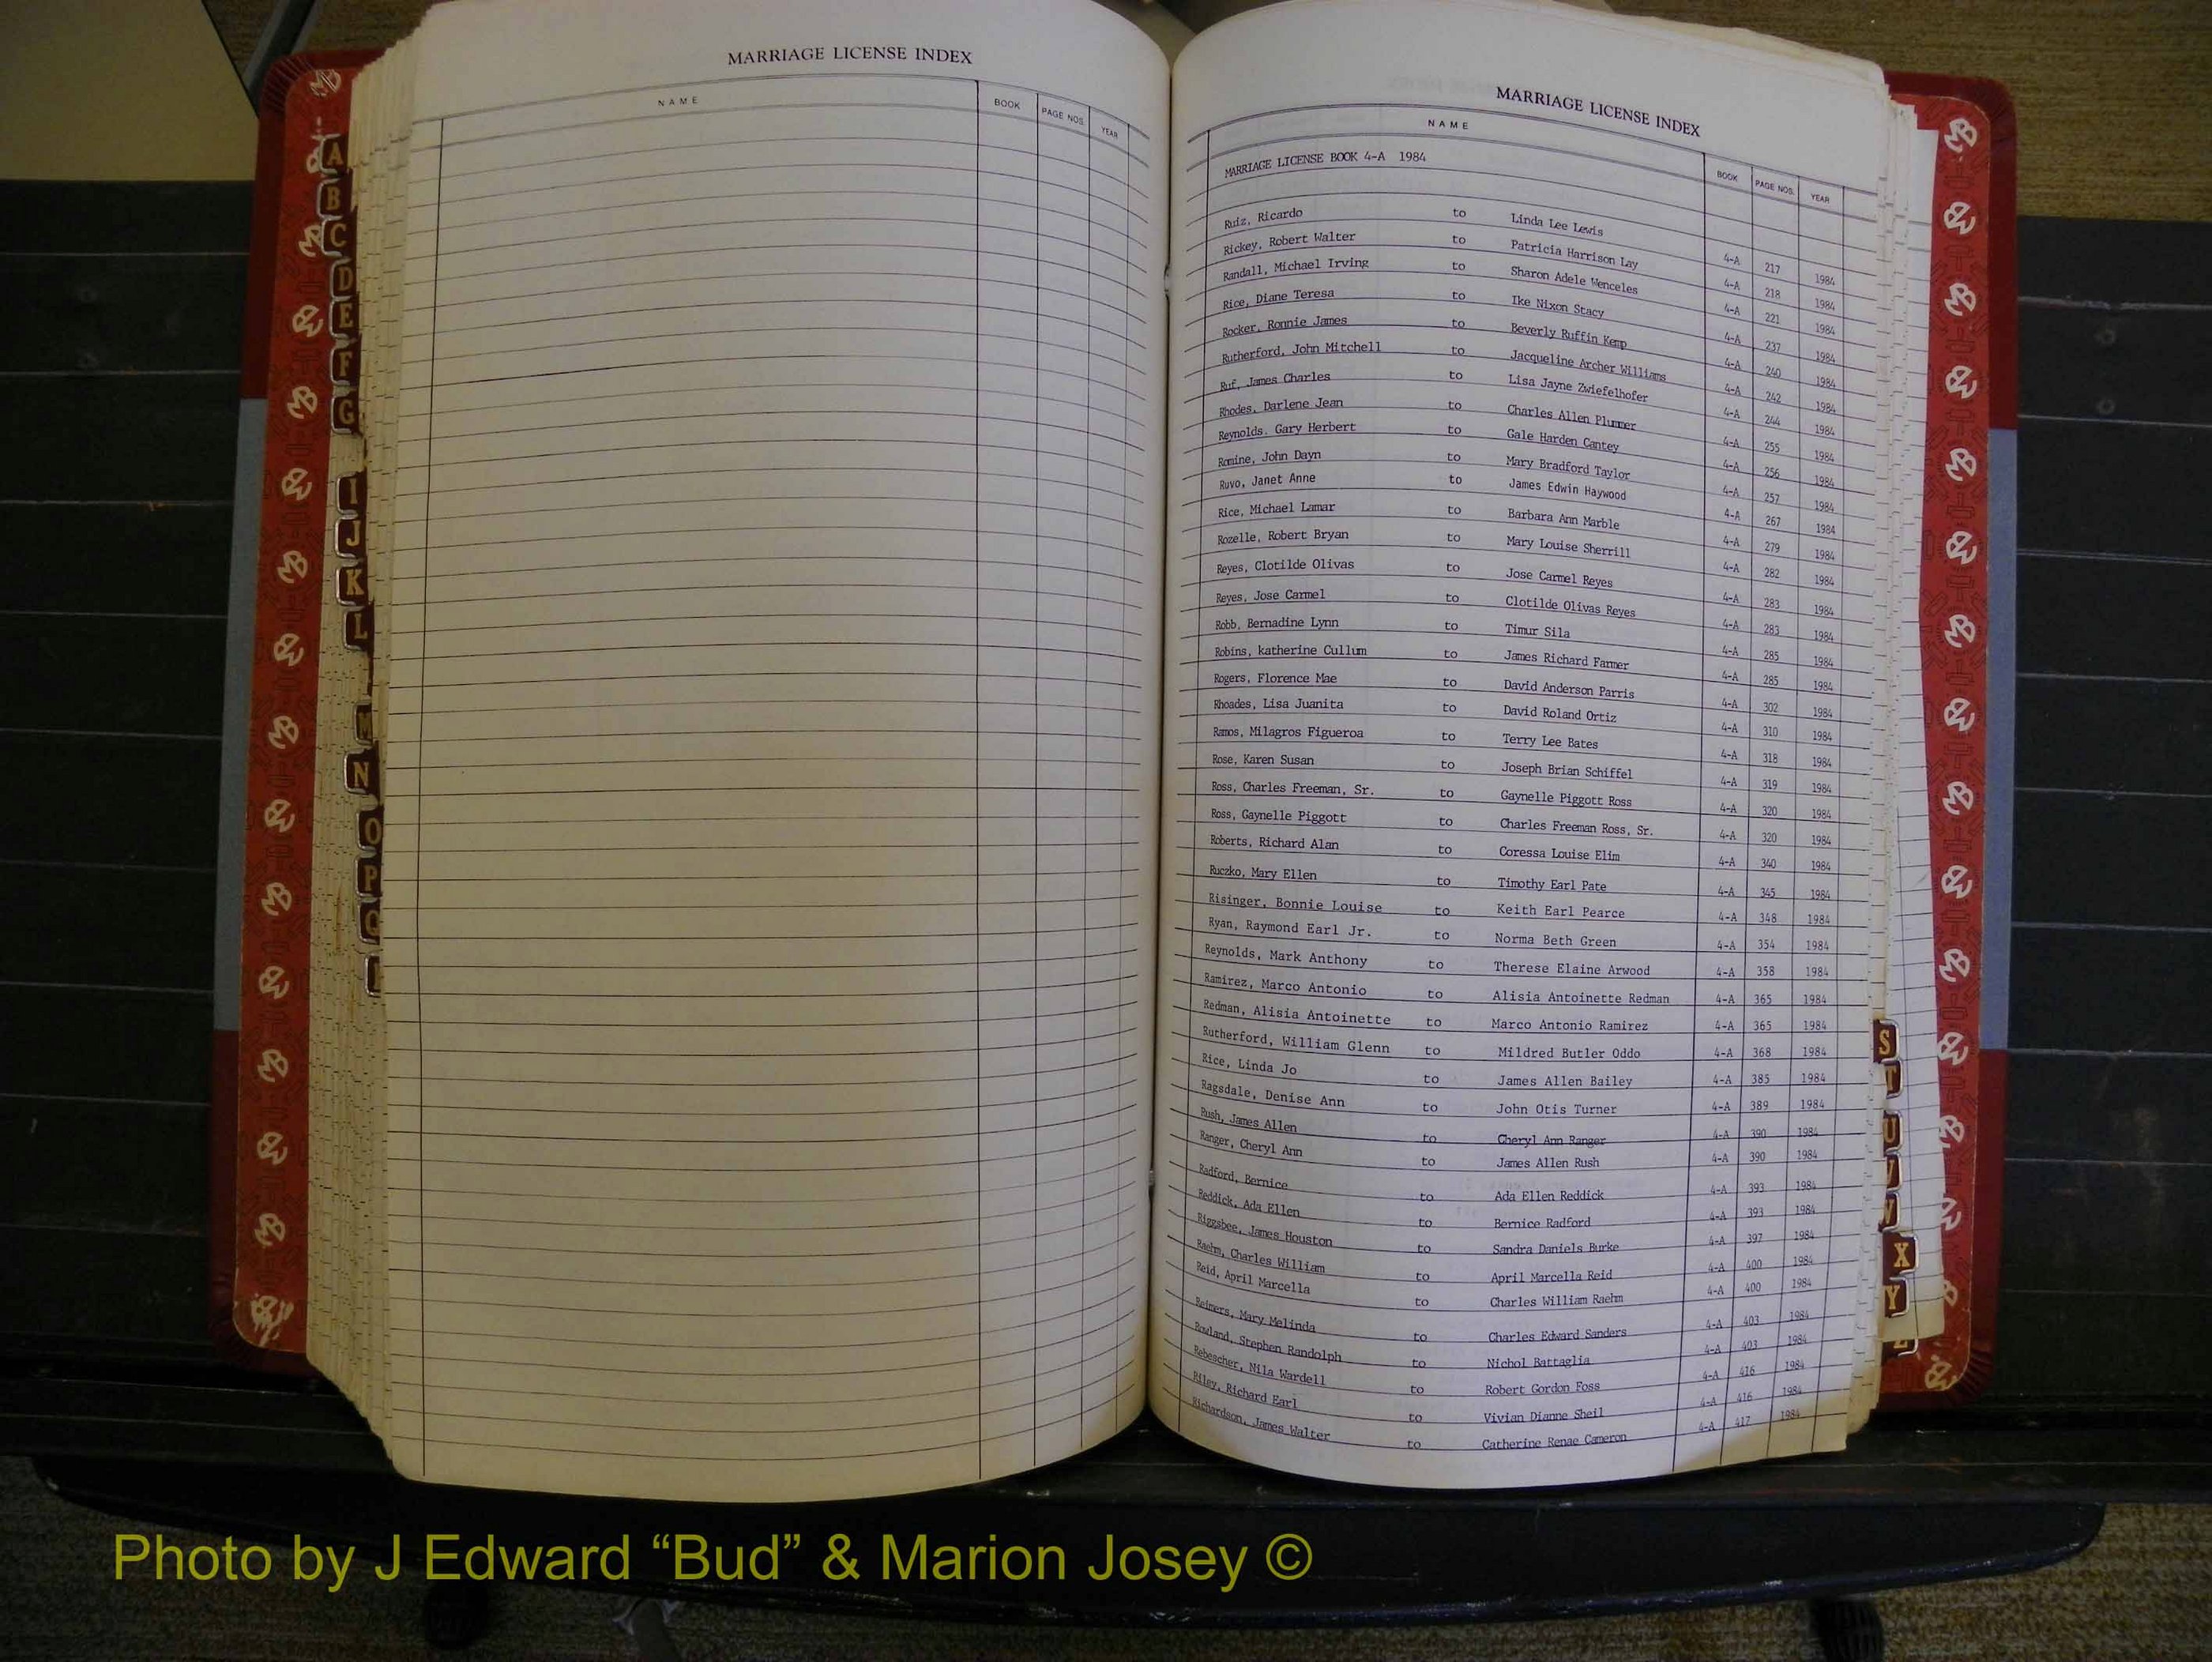 MARRIAGE LICENSE INDEX
NAME BOOK PAGE NOS. YEAR
A
B
C
D
E
F
G
I
J
K
L
M
N
O
P
Q
MARRIAGE LICENSE INDEX
NAME BOOK PAGE NOS. YEAR
MARRIAGE LICENSE BOOK 4-A 1984
Ruiz, Ricardo to Linda Lee Lewis 4-A 217 1984
Rickey, Robert Walter to Patricia Harrison Lay 4-A 218 1984
Randall, Michael Irving to Sharon Adele Wenceles 4-A 221 1984
Rice, Diane Teresa to Ike Nixon Stacy 4-A 237 1984
Rocker, Ronnie James to Beverly Ruffin Kemp 4-A 240 1984
Rutherford, John Mitchell to Jacqueline Archer Williams 4-A 242 1984
Ruf, James Charles to Lisa Jayne Zwiefelhofer 4-A 244 1984
Rhodes, Darlene Jean to Charles Allen Plummer 4-A 255 1984
Reynolds. Gary Herbert to Gale Harden Cantey 4-A 256 1984
Romine, John Dayn to Mary Bradford Taylor 4-A 257 1984
Ruvo, Janet Anne to James Edwin Haywood 4-A 267 1984
Rice, Michael Lamar to Barbara Ann Marble 4-A 279 1984
Rozelle, Robert Bryan to Mary Louise Sherrill 4-A 282 1984
Reyes, Clotilde Olivas to Jose Carmel Reyes 4-A 283 1984
Reyes, Jose Carmel to Clotilde Olivas Reyes 4-A 283 1984
Robb, Bernadine Lynn to Timur Sila 4-A 285 1984
Robins, katherine Cullum to James Richard Farmer 4-A 285 1984
Rogers, Florence Mae to David Anderson Parris 4-A 302 1984
Rhoades, Lisa Juanita to David Roland Ortiz 4-A 310 1984
Ramos, Milagros Figueroa to Terry Lee Bates 4-A 318 1984
Rose, Karen Susan to Joseph Brian Schiffel 4-A 319 1984
Ross, Charles Freeman, Sr. to Gaynelle Piggott Ross 4-A 320 1984
Ross, Gaynelle Piggott to Charles Freeman Ross, Sr. 4-A 320 1984
Roberts, Richard Alan to Coressa Louise Elim 4-A 340 1984
Ruczko, Mary Ellen to Timothy Earl Pate 4-A 345 1984
Risinger, Bonnie Louise to Keith Earl Pearce 4-A 348 1984
Ryan, Raymond Earl Jr. to Norma Beth Green 4-A 354 1984
Reynolds, Mark Anthony to Therese Elaine Arwood 4-A 358 1984
Ramirez, Marco Antonio to Alisia Antoinette Redman 4-A 365 1984
Redman, Alisia Antoinette to Marco Antonio Ramirez 4-A 365 1984
Rutherford, William Glenn to Mildred Butler Oddo 4-A 368 1984
Rice, Linda Jo to James Allen Bailey 4-A 385 1984
Ragsdale, Denise Ann to John Otis Turner 4-A 389 1984
Rush, James Allen to Cheryl Ann Ranger 4-A 390 1984
Ranger, Cheryl Ann to James Allen Rush 4-A 390 1984
Radford, Bernice to Ada Ellen Reddick 4-A 393 1984
Reddick, Ada Ellen to Bernice Radford 4-A 393 1984
Riggsbee, James Houston to Sandra Daniels Burke 4-A 397 1984
Raehm, Charles William to April Marcella Reid 4-A 400 1984
Reid, April Marcella to Charles William Raehm 4-A 400 1984
Reimers, Mary Melinda to Charles Edward Sanders 4-A 403 1984
Rowland, Stephen Randolph to Nichol Battaglia 4-A 403 1984
Rebescher, Nila Wardell to Robert Gordon Foss 4-A 416 1984
Riley, Richard Earl to Vivian Dianne Sheil 4-A 416 1984
Richardson, James Walter to Catherine Renae Cameron 4-A 417 1984
S
T
U
X
Y
Photo by J Edward “Bud” & Marion Josey ©